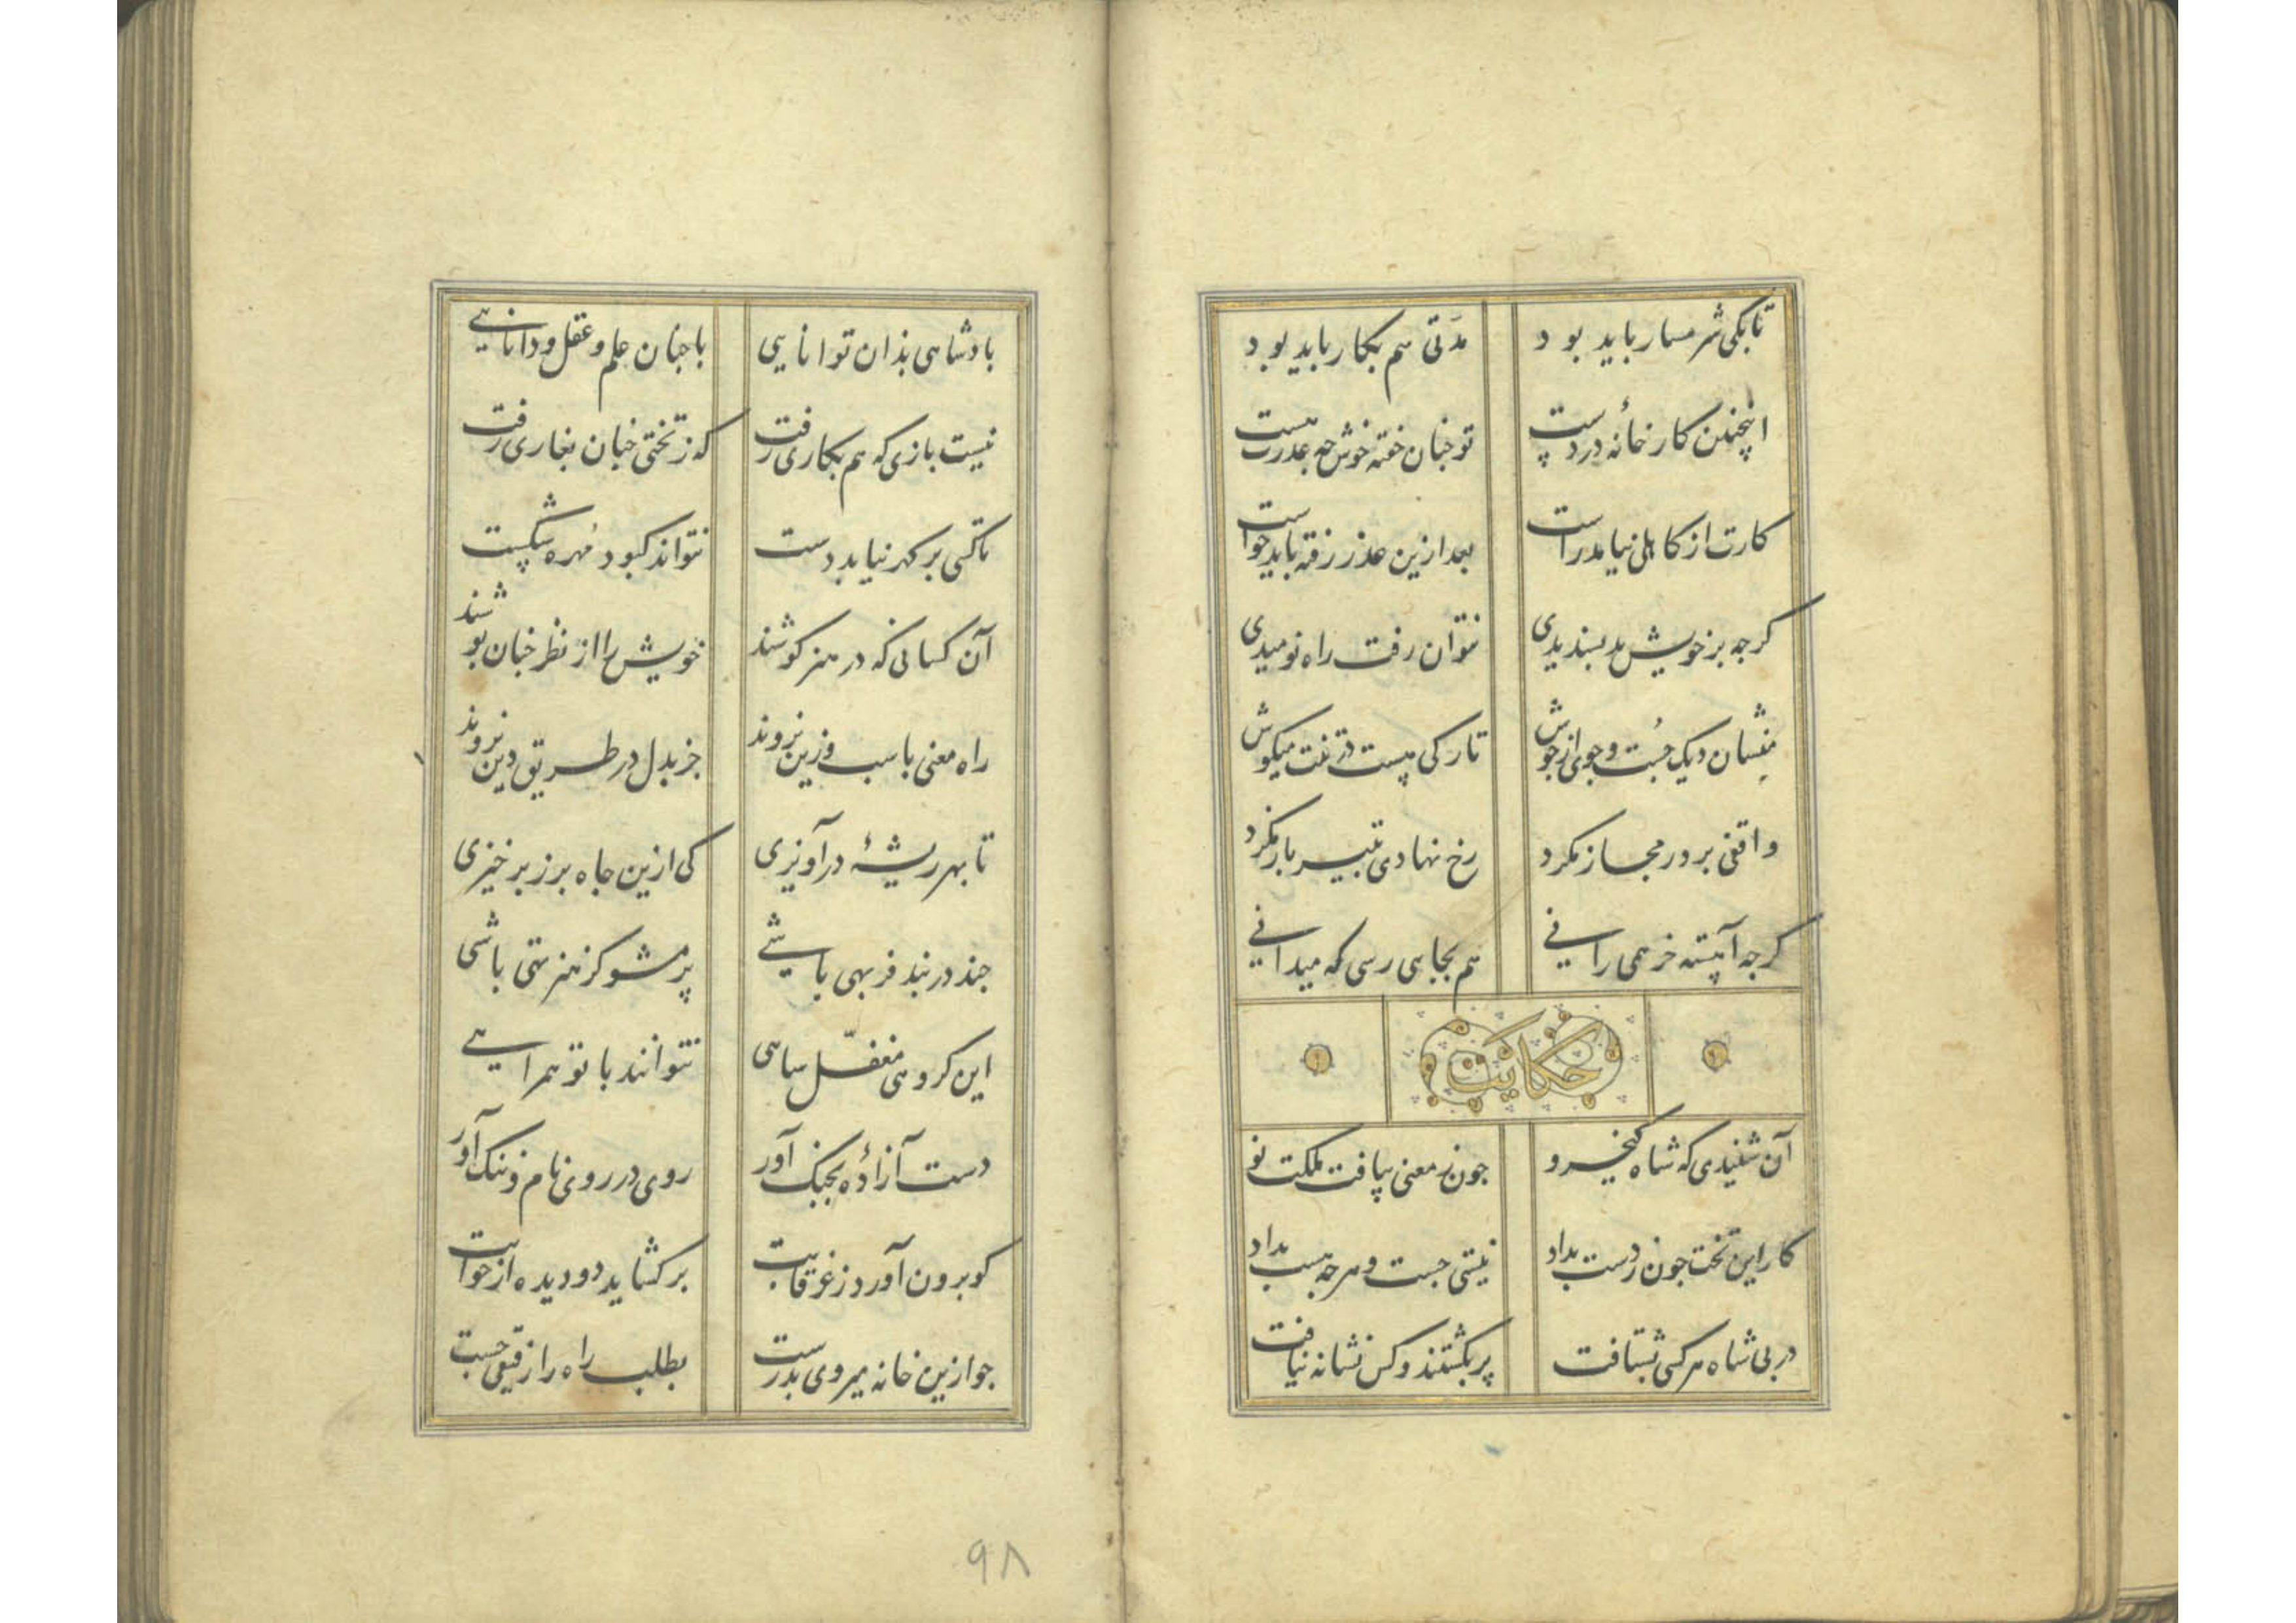 تا بکی شرمسار باید بود مدتی هم بکار باید بود
اینچنین کارخانه در دست تو چنان خفته خوش چه عذرت هست
کارت از کاهلی نیامد راست بعد ازین عذر رفته باید خواست
کرچه بر خویش بد بسندیدی نتوان رفت راه نومیدی
منشان دیک جست و جوی از جوش تا رکی هست در تنت میکوش
واقفی بر در مجاز نکرد رخ نهادی بتیر باز نکرد
کرچه آهسته خر همی رانی هم بجایی رسی که میدانی
حکایت
آن شنیدی که شاه کیخسرو چون ز معنی بیافت ملکت نو
کار این تخت چون ز دست بداد نیستی جست و هرچه هست بداد
در پی شاه هر کسی بشتافت بر بکشتند و کس نشانه نیافت
بادشاهی بذان توانایی با چنان علم و عقل و دانایی
نیست بازی که هم بکاری رفت که ز تختی چنان بغاری رفت
تا کسی بر کهر نیابد دست نتواند کبود مهره شکست
آن کسانی که در هنر کوشند خویش را از نظر چنان بوشند
راه معنی با سب وزین نروند جز بدل در طریق دین نروند
تا بهر ریشهٔ درآویزی کی ازین چاه برز بر خیزی
چند در بند فربهی باشی بر مشو کز هنر تهی باشی
این کروهی مغفل ساهی نتوانند با تو همراهی
دست آزادهٔ بجنک آور روی در روی نام و ننک آور
کو برون آورد ز غرقابت بر کشاید دو دیده از خوابت
چو ازین خانه میروی بدرست بطلب راه را رفیقی چست
۹۸